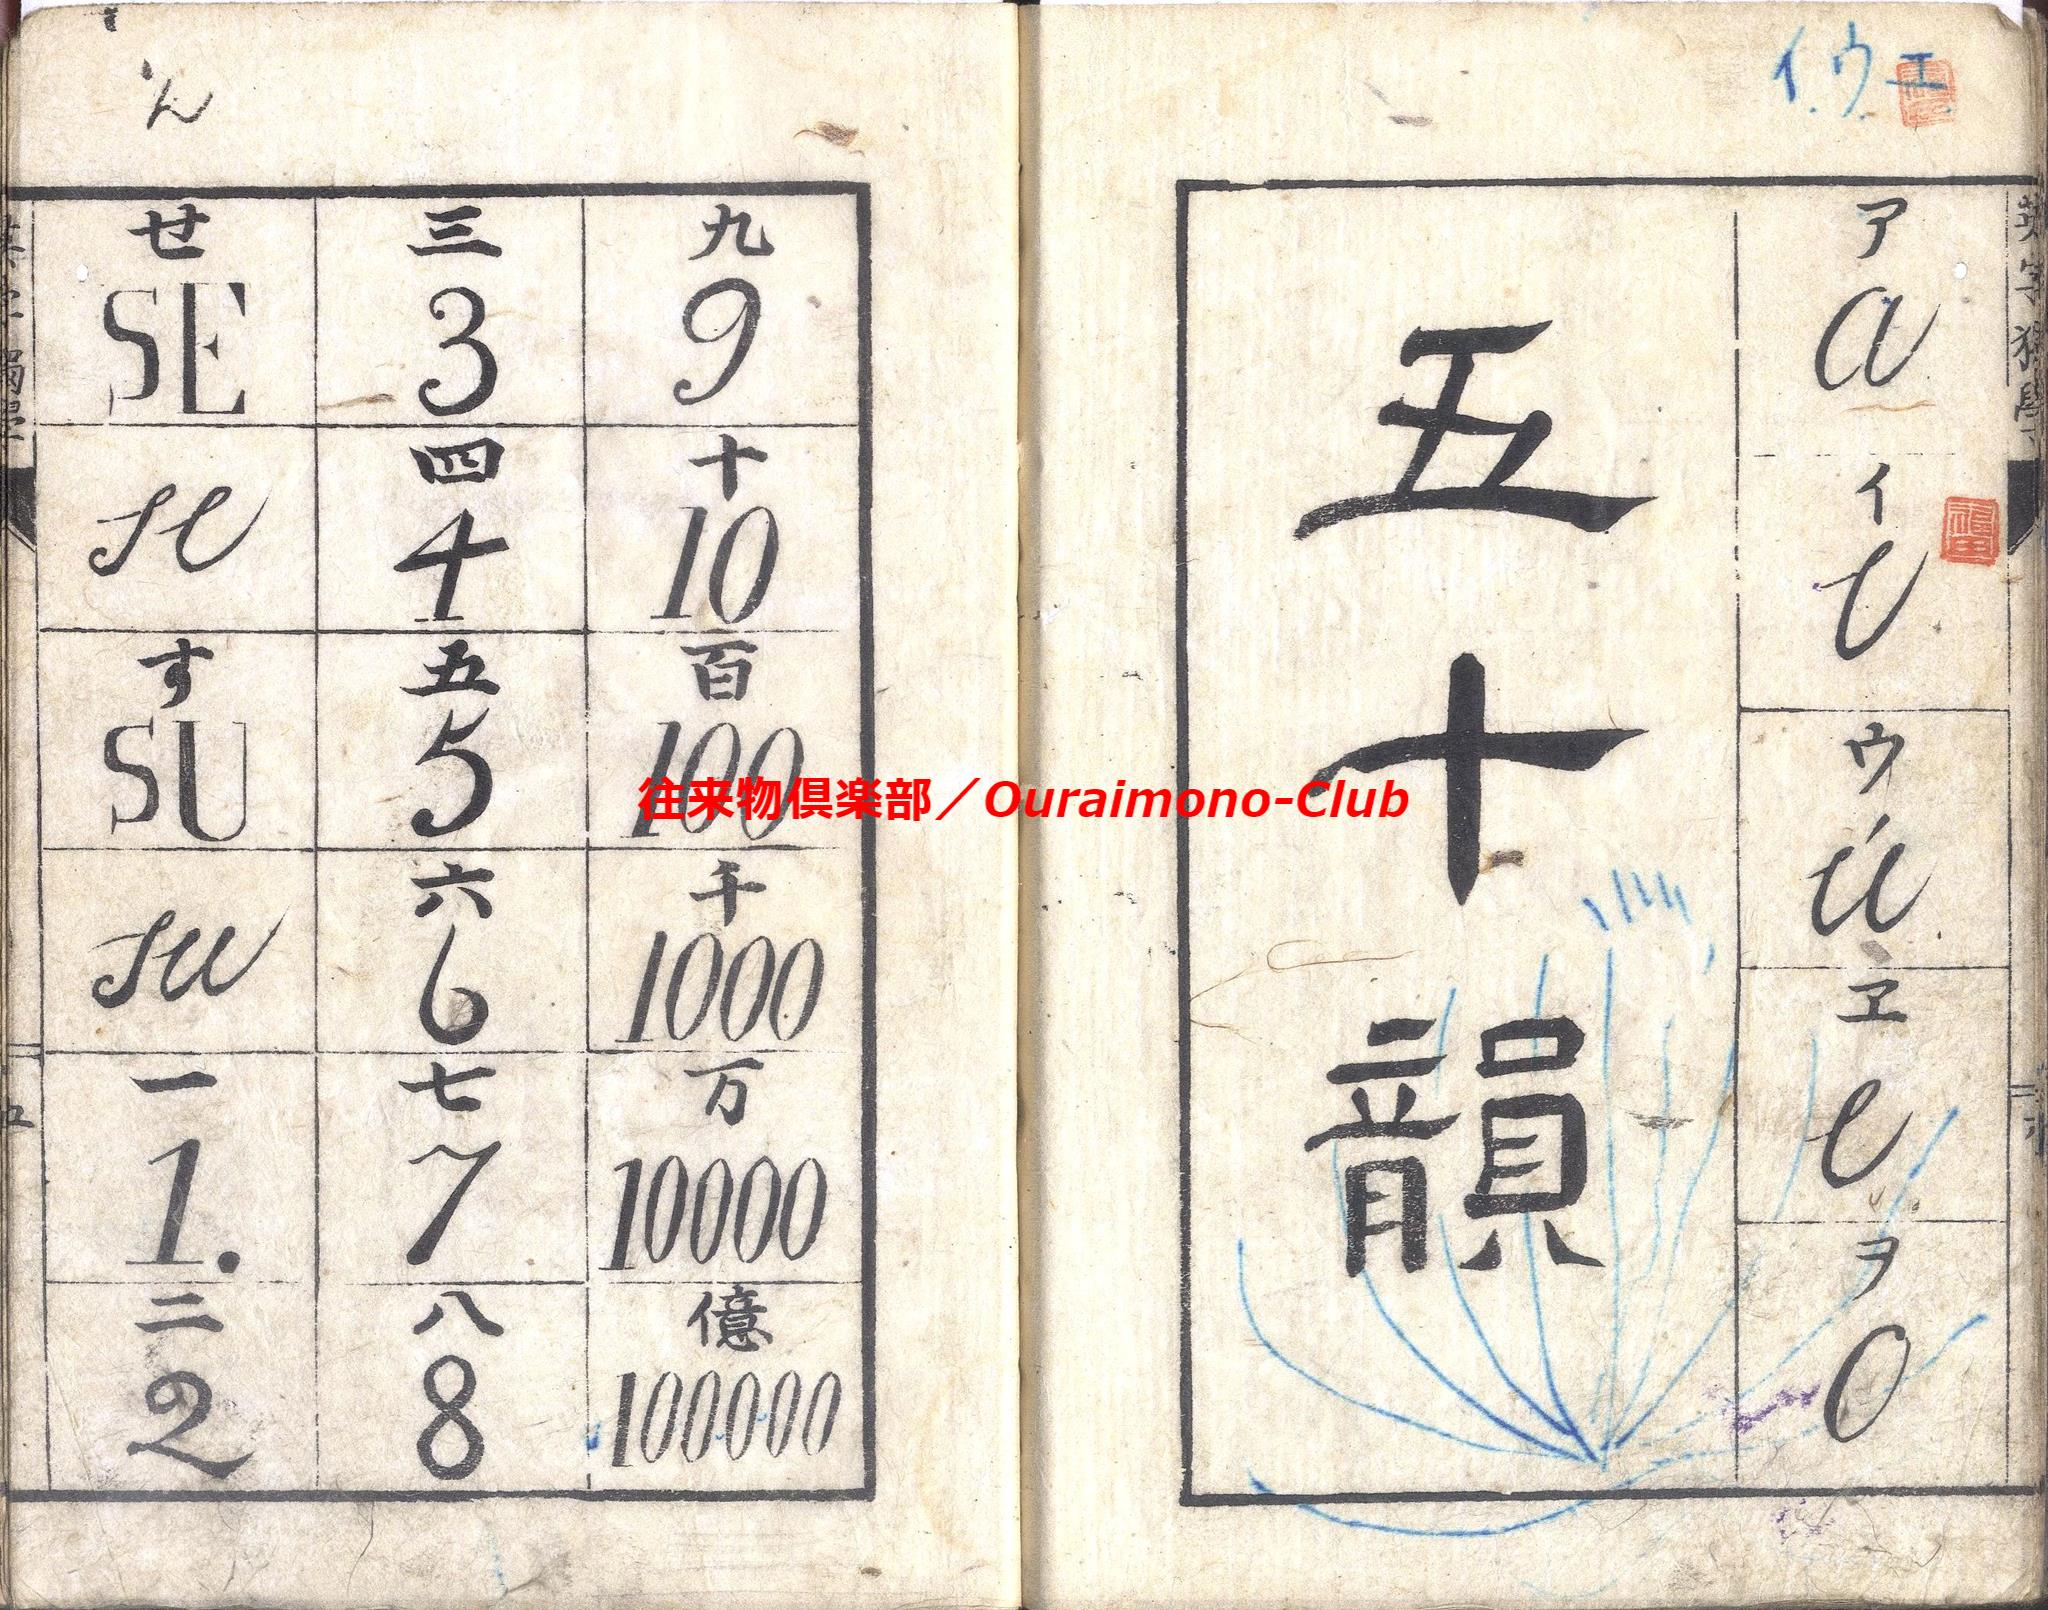 ん
せ
SE
se
す
SU
su
一
1.
二
2
三
3
四
4
五
5
六
6
七
7
八
8
九
9
十
10
百
100
千
1000
万
10000
億
100000
五
五十韻
イ.ウ.エ.
ア
a
イ
i
ウ
u
ヱ
e
ヲ
o
往来物倶楽部／Ouraimono-Club